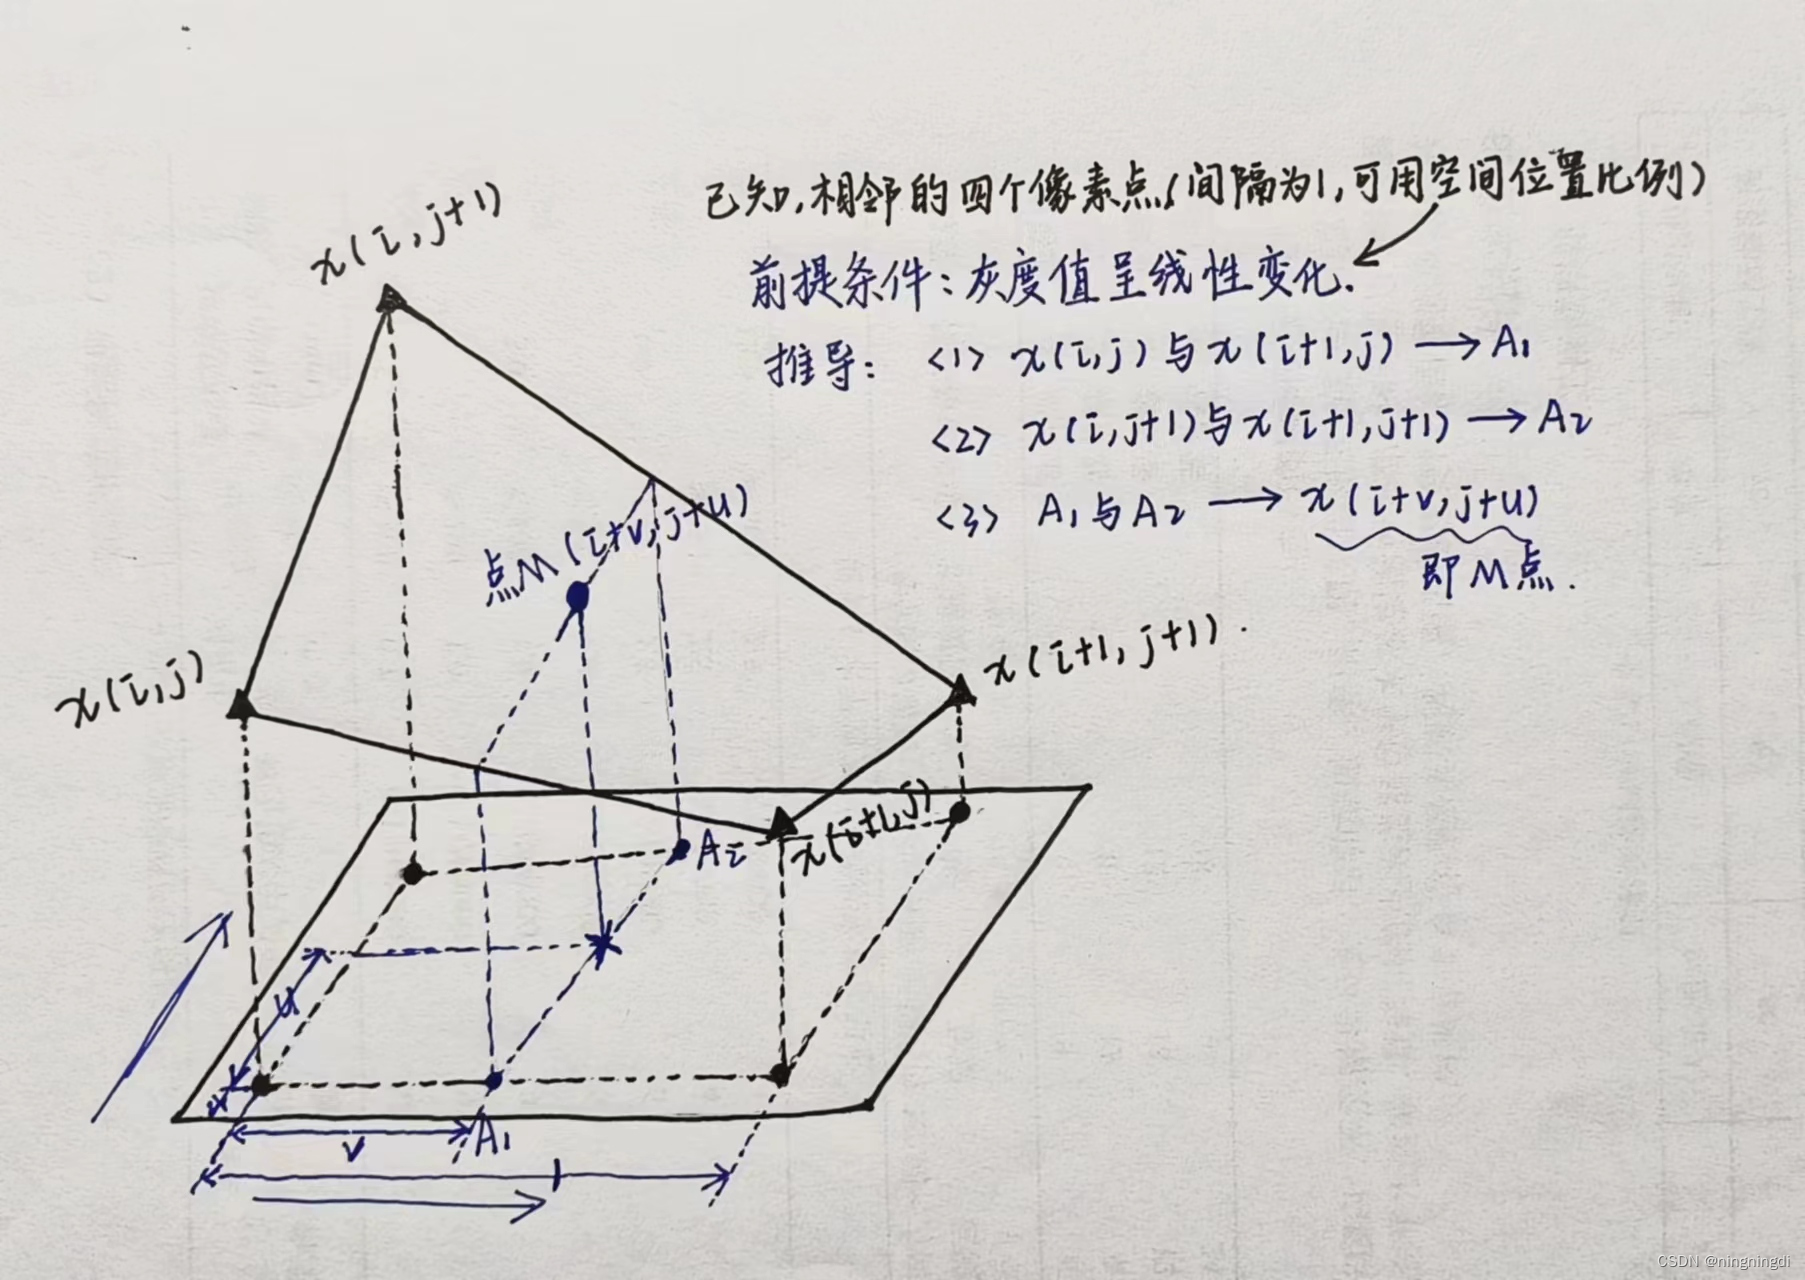 已知,相邻的四个像素点(间隔为1,可用空间位置比例)
前提条件:灰度值呈线性变化.
推导: <1> x(i,j)与x(i+1,j) → A1
<2> x(i,j+1)与x(i+1,j+1) → A2
<3> A1与A2 → x(i+v,j+u)
即M点.
x(i,j+1)
点M(i+v,j+u)
x(i,j)
x(i+1,j+1).
x(i+1,j)
A2
u
A1
v
1
CSDN @ningningdi